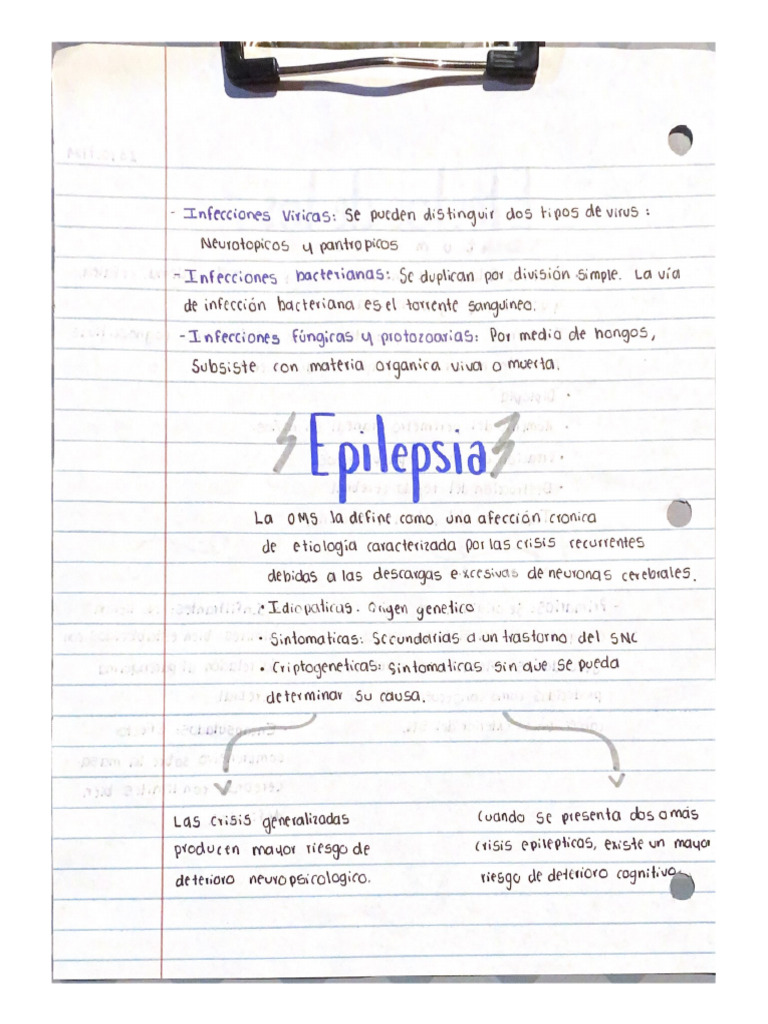 - Infecciones Viricas: Se pueden distinguir dos tipos de virus:
Neurotopicos y pantropicos
- Infecciones bacterianas: Se duplican por división simple. La vía
de infección bacteriana es el torrente sanguineo.
- Infecciones fúngicas y protozoarias: Por medio de hongos,
Subsiste con materia organica viva o muerta.
Epilepsia
La OMS la define como una afección cronica
de etiologia caracterizada por las crisis recurrentes
debidas a las descargas excesivas de neuronas cerebrales.
• Idiopaticas. Origen genetico
• Sintomaticas: Secundarias a un trastorno del SNC
• Criptogeneticas: Sintomaticas sin que se pueda
determinar su causa.
Las crisis generalizadas
producen mayor riesgo de
deterioro neuropsicologico.
Cuando se presenta dos o más
crisis epilepticas, existe un mayor
riesgo de deterioro cognitivo.